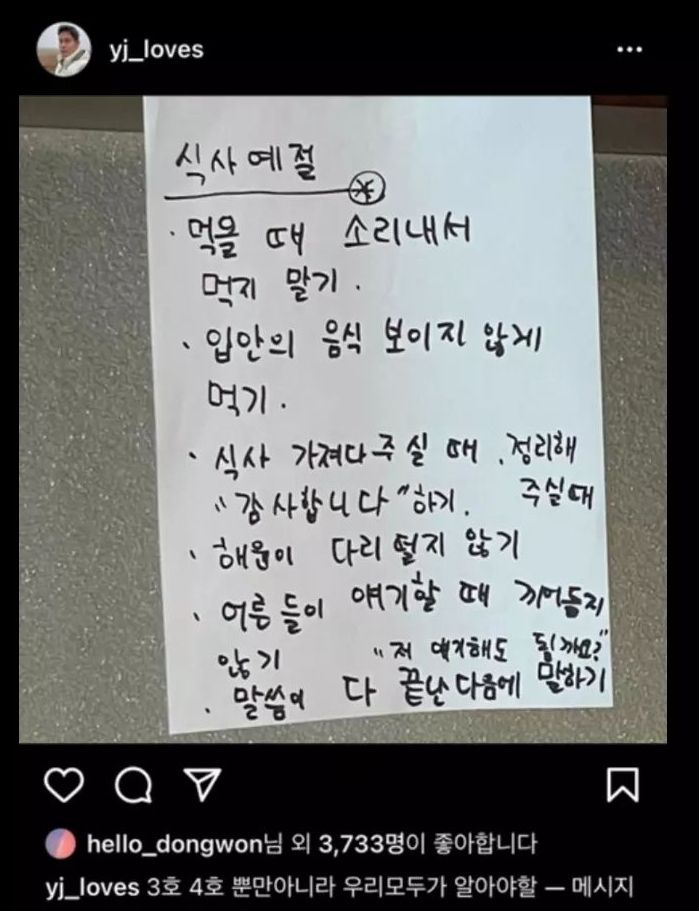 yj_loves
식사예절
· 먹을 때 소리내서
먹지 말기.
· 입안의 음식 보이지 않게
먹기.
· 식사 가져다주실 때, 정리해
주실때
"감사합니다"하기.
· 해윤이 다리 떨지 않기
· 어른들이 얘기할 때 끼어들지
않기 "저 얘기해도 될까요?"
· 말씀이 다 끝난다음에 말하기
hello_dongwon님 외 3,733명이 좋아합니다
yj_loves 3호 4호 뿐만아니라 우리모두가 알아야할 — 메시지